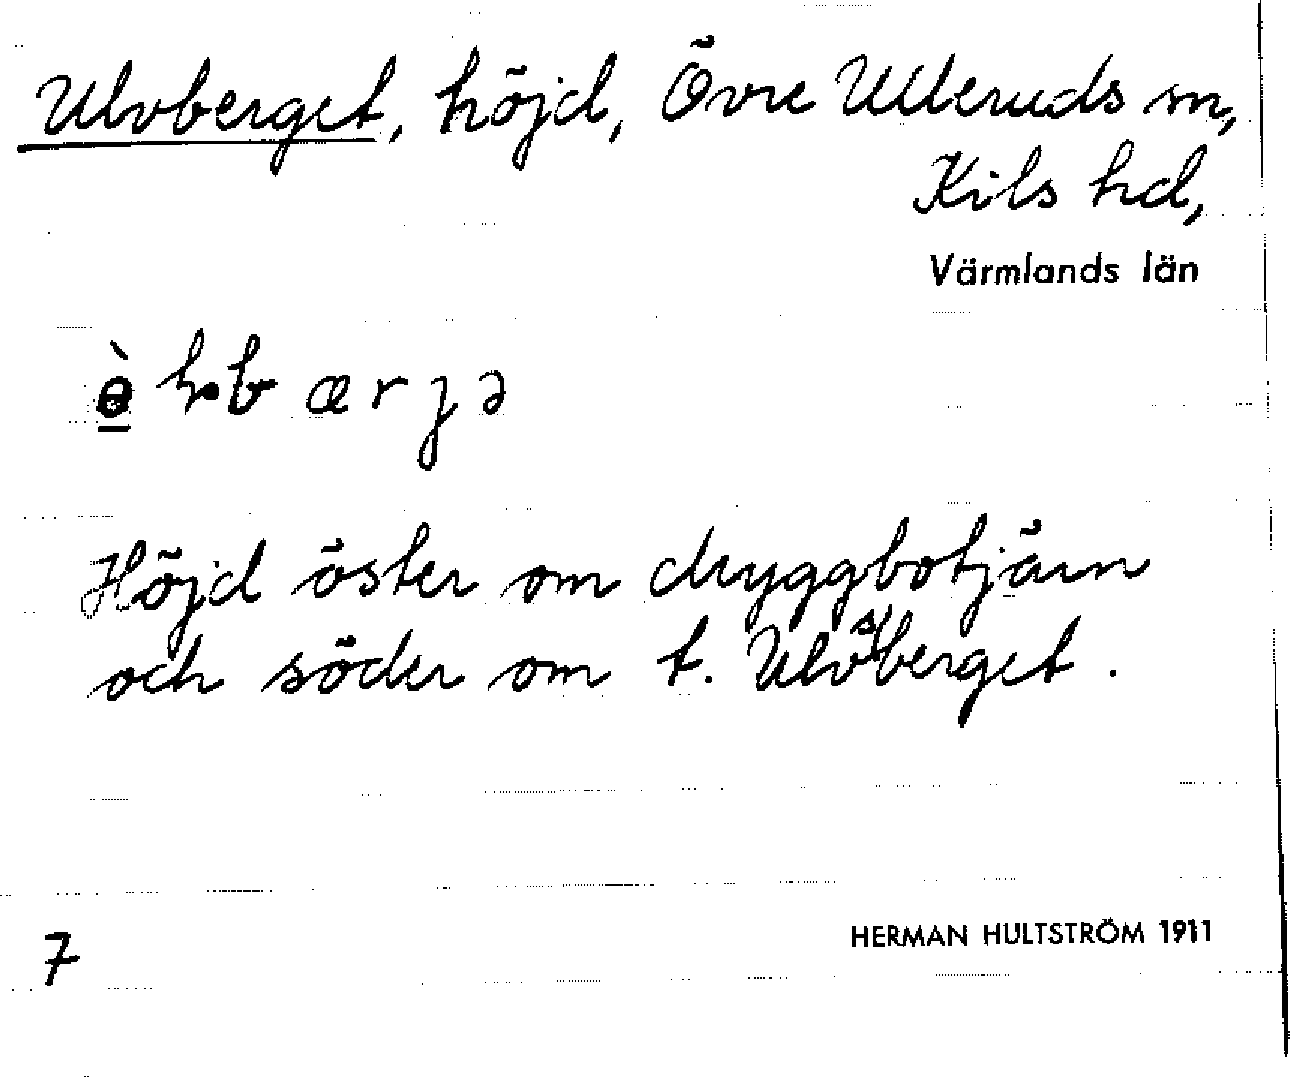 Ulvberget, höjd, Övre Ulleruds sn,
Kils hd,
Värmlands län
bærjə
Höjd öster om dryggbotjärn
och söder om t. Ulvsberget.
7
HERMAN HULTSTRÖM 1911